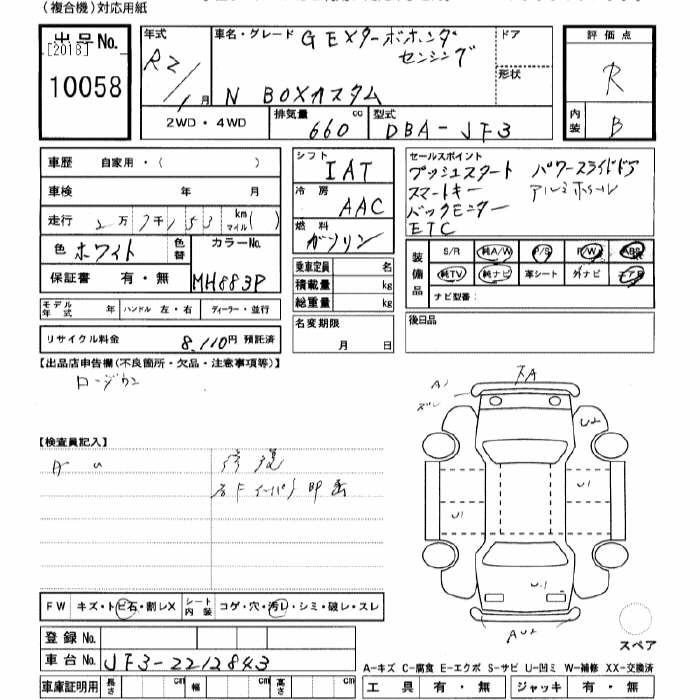 (複合機)対応用紙
出品No.
[2018]
10058
年式
R2/1月
車名・グレード
G EXターボホンダ
センシング
N BOXカスタム
ドア
形状
評価点
R
内装
B
2WD・4WD
排気量
660cc
型式
DBA-JF3
車歴 自家用・( )
車検 年 月
走行 2万7千153 km マイル( )
色 ホワイト
色替
カラーNo.
MH883P
保証書 有・無
モデル年式 年 ハンドル 左・右 ディーラー・並行
リサイクル料金 8,110円 預託済
シフト
IAT
冷房
AAC
燃料
ガソリン
乗車定員 名
積載量 kg
総重量 kg
名変期限
月 日
セールスポイント
プッシュスタート パワースライドドア
スマートキー アルミホイール
バックモニター
ETC
装備品
S/R 純A/W P/S P/W ABS
純TV 純ナビ 革シート 外ナビ エアB
ナビ型番:
後日品
【出品店申告欄(不良箇所・欠品・注意事項等)】
ローダウン
【検査員記入】
A U 修復
右Fインパネ凹歪
F W キズ・トビ石・割レX シート内装 コゲ・穴・汚レ・シミ・破レ・スレ
登録No.
車台No. JF3-2212843
車庫証明用 長さ cm 幅 cm 高さ cm
XA
A1
ズレ
U2
U1
U1
U1
AU2
スペア
A-キズ C-腐食 E-エクボ S-サビ U-凹ミ W-補修 XX-交換済
工具 有・無 ジャッキ 有・無